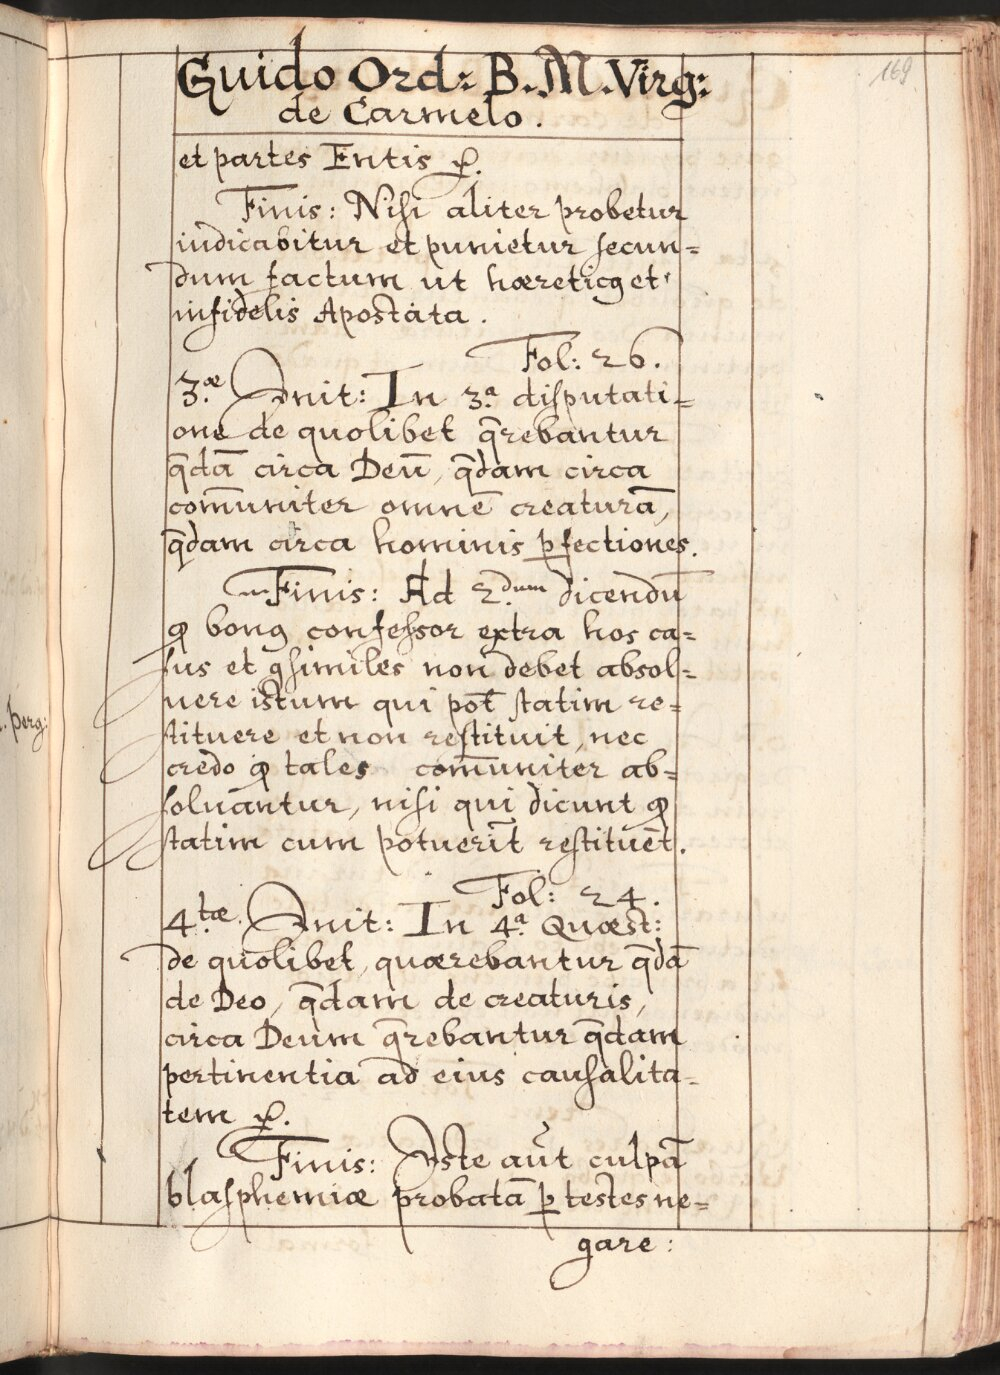 169
Guido Ord: B. M. Virg:
de Carmelo.
et partes Entis ꝛc.
Finis: Nisi aliter probetur
iudicabitur et punietur secun=
dum factum ut hæreticꝰ et
infidelis Apostata.
Fol: 26.
3.æ Init: In 3.a disputati=
one de quolibet q̄rebantur
q̄dā circa Deū, q̄dam circa
com̄uniter omnē creaturā,
q̄dam circa hominis ꝑfectiones.
Finis: Ad 2.dum dicendū
ꝙ bonꝰ confessor extra hos ca=
sus et ꝯsimiles non debet absol=
uere istum qui pot̄ statim re=
stituere et non restituit, nec
credo ꝙ tales com̄uniter ab=
soluantur, nisi qui dicunt ꝙ
statim cum potuerīt restituēt.
Fol: 24.
4.tæ Init: In 4.a Quæst:
de quolibet, quærebantur q̄dā
de Deo, q̄dam de creaturis,
circa Deum q̄rebantur q̄dam
pertinentia ad eius causalita=
tem ꝛc.
Finis: Iste aūt culpā
blasphemiæ probatā ꝑ testes ne=
gare:
. perg: